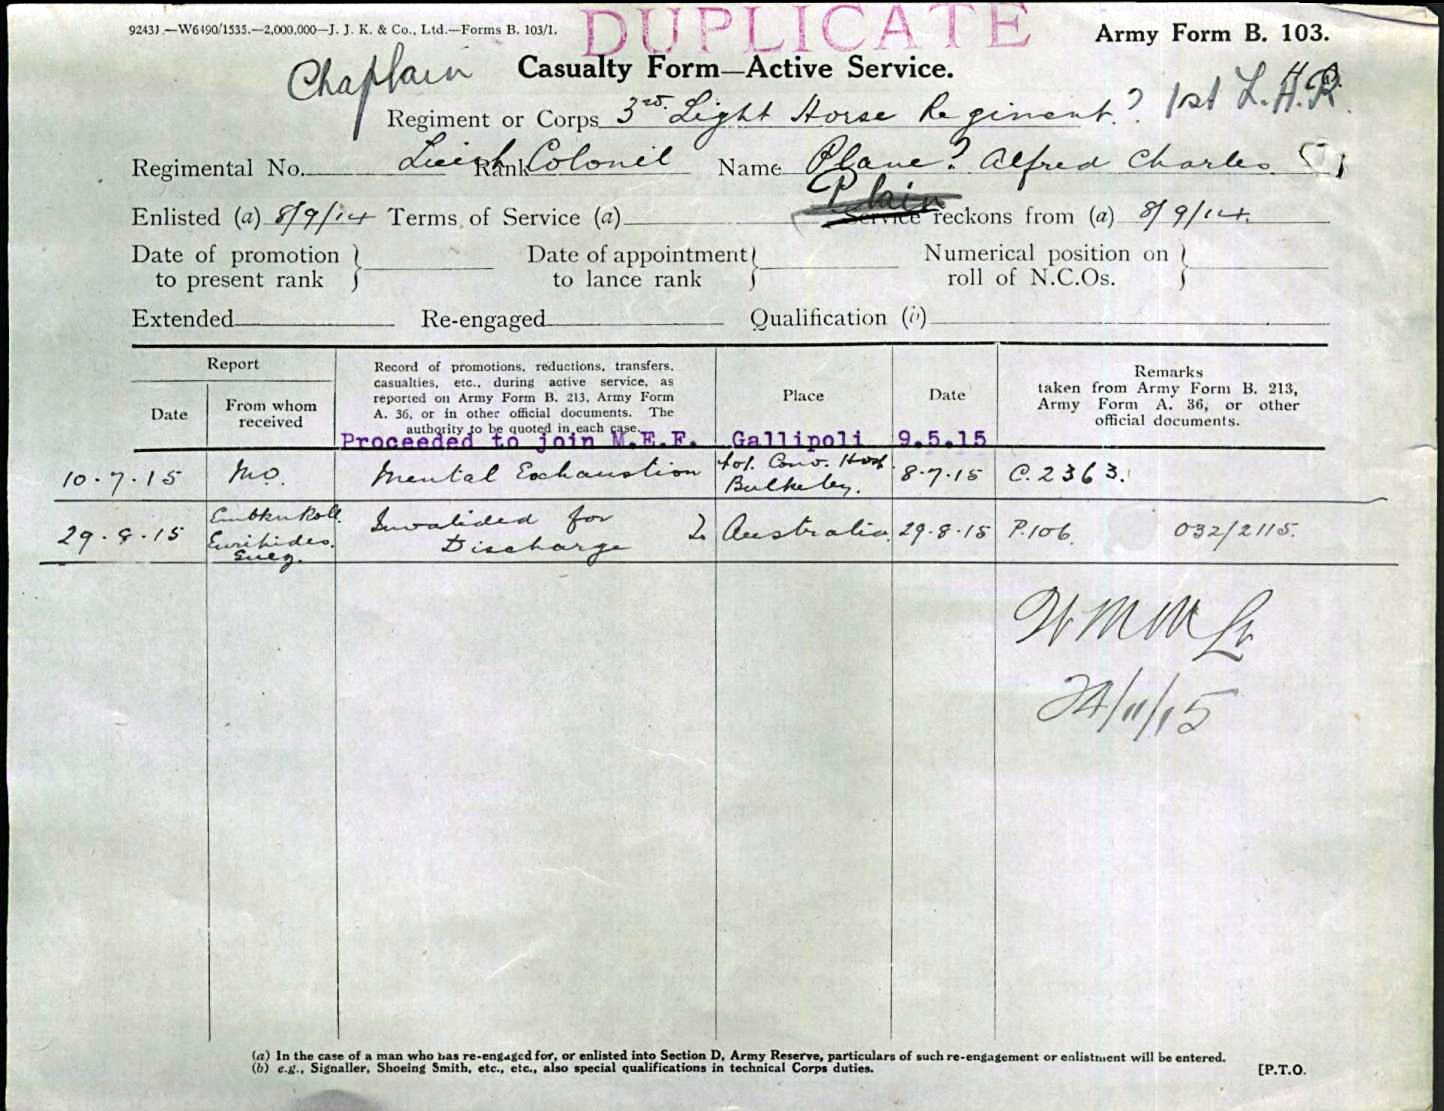 92431.—W6490/1535.—2,000,000—J. J. K. & Co., Ltd.—Forms B. 103/1.
DUPLICATE
Army Form B. 103.
Chaplain
Casualty Form—Active Service.
Regiment or Corps 3rd. Light Horse Regiment? 1st L.H.R.
Regimental No. Rank Lieut Colonel Name Plane? Alfred Charles
Plain
Enlisted (a) 8/9/14 Terms of Service (a) Service reckons from (a) 8/9/14.
Date of promotion to present rank
Date of appointment to lance rank
Numerical position on roll of N.C.Os.
Extended Re-engaged Qualification (b)
Report
Date
From whom received
Record of promotions, reductions, transfers,
casualties, etc., during active service, as
reported on Army Form B. 213, Army Form
A. 36, or in other official documents. The
authority to be quoted in each case.
Place
Date
Remarks
taken from Army Form B. 213,
Army Form A. 36, or other
official documents.
Proceeded to join M.E.F. Gallipoli 9.5.15
10.7.15 MO. Mental Exhaustion Conv. Hosp Bulkeley. 8.7.15 C.2363.
29.8.15 Euripides. Suez. Invalided for Discharge Australia 29.8.15 P.106. 032/2115.
24/11/15
(a) In the case of a man who has re-engaged for, or enlisted into Section D, Army Reserve, particulars of such re-engagement or enlistment will be entered.
(b) e.g., Signaller, Shoeing Smith, etc., etc., also special qualifications in technical Corps duties.
[P.T.O.